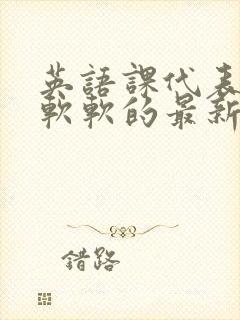 英語課代表
軟軟的最新
錯路